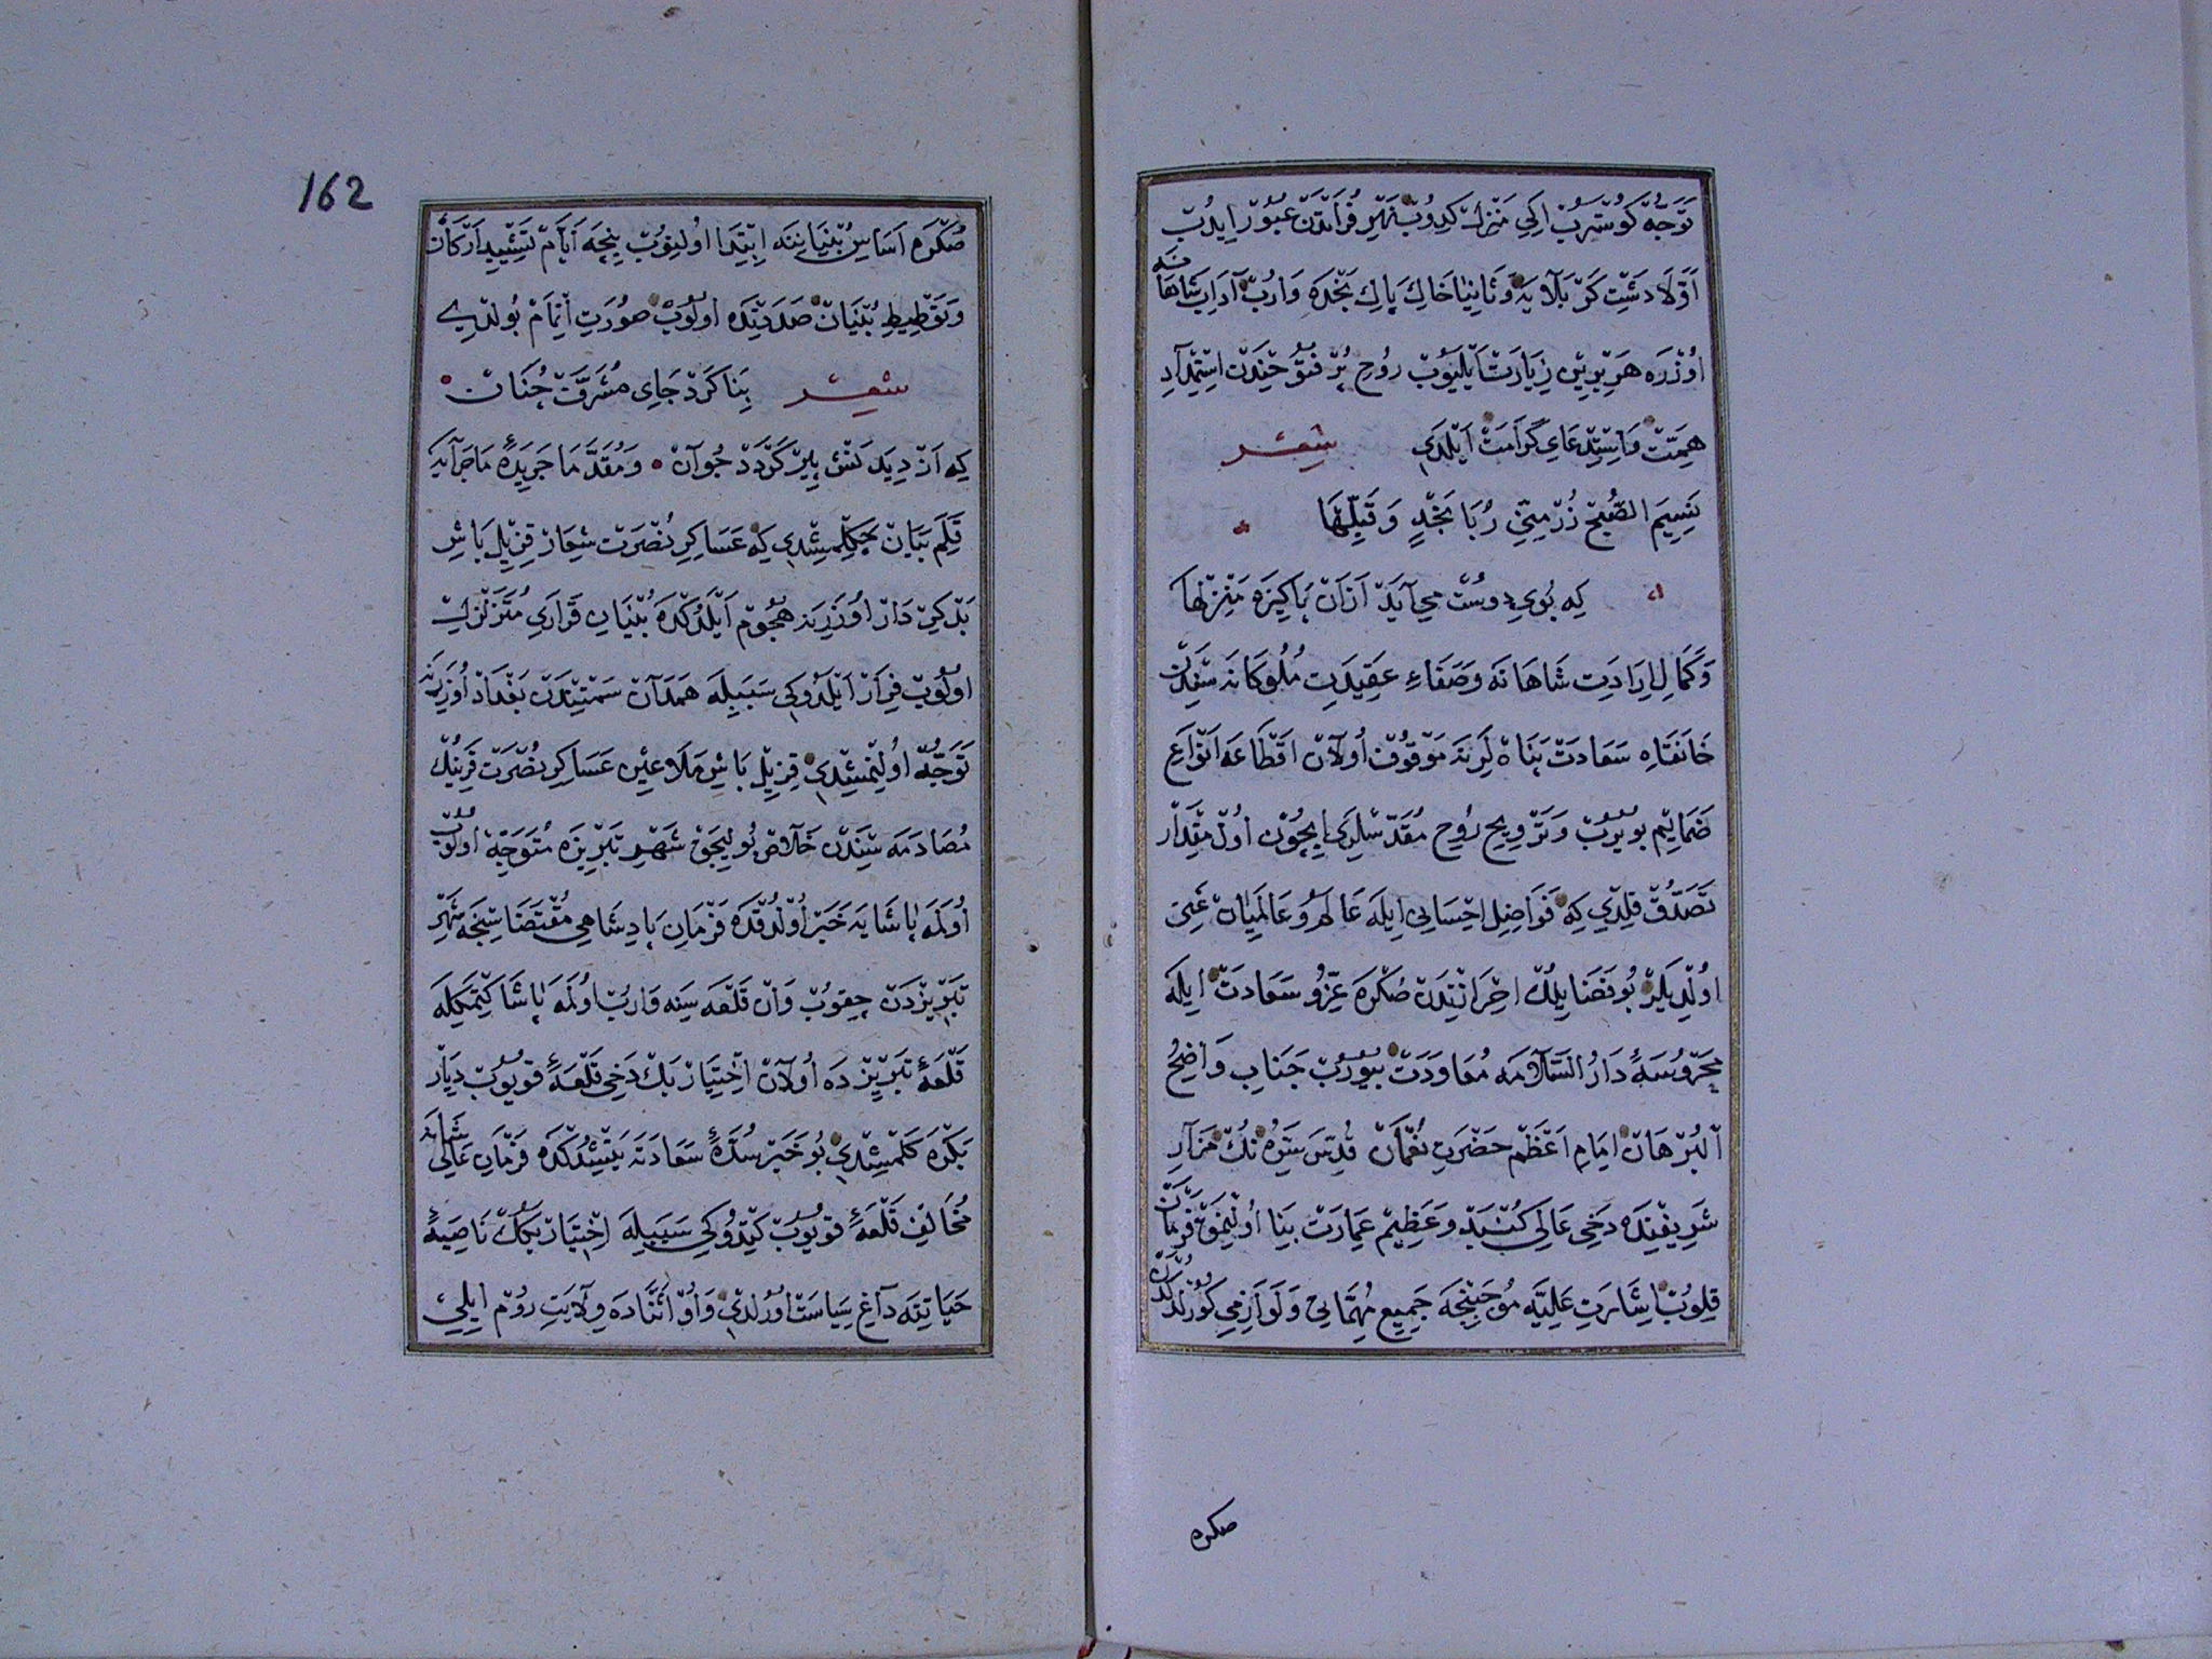 تَوَجُّه كُوسْتَرُبْ اِكِي مَنْزِلْ كِدُوبْ نَهْرِ فُرَاتْدَنْ عُبُورْ اِيدُبْ
اَوَّلَا دَشْتِ كَرْبَلَايَه وَثَانِيًا خَاكِ پَاكِ نَجْدَه وَارُبْ آدَابِ شَاهَانَه
اُوزْرَه هَرْ بِرِينْ زِيَارَتْ اَيْلَيُوبْ رُوحِ پُرْ فُتُوحِنْدَنْ اِسْتِمْدَادِ
هِمَّتْ وَاِسْتِدْعَايِ كَرَامَتْ اَيْلَدِي شِعِرْ
نَسِيمَ الصُّبْحِ زُرْ مِنِّي رُبَا نَجْدٍ وَقَبِّلْهَا
كِه بُويِ دوسْتْ مِي آيَدْ اَزَانْ پَاكِيزَه مَنْزِلْهَا
وَكَمَالِ اِرَادَتِ شَاهَانَه وَصَفَاءِ عَقِيدَتِ مُلُوكَانَه سَنْدَنْ
خَانَقَاهِ سَعَادَتْ پَنَاهْلَرِنَه مَوْقُوفْ اُولَانْ اَقْطَاعَه اَنْوَاعِ
ضَمَايِمْ بويُرُبْ وَتَرْوِيحِ رُوحِ مُقَدَّسْلَرِي اِيچُونْ اُولْ مِقْدَارْ
تَصَدُّقْ قِلْدِي كِه فَوَاضِلِ اِحْسَانِي اِيلَه عَالَمْ وُ عَالَمِيَانْ غَنِي
اُولْدِيلَرْ بُو فَضَايِلُكْ اِحْرَازِنْدَنْ صُكْرَه عِزُّو سَعَادَتْ اِيلَه
مَحْرُوسَهٔ دَارُ السَّلَامَه مُعَاوَدَتْ بُيُورُبْ جَنَابِ وَاضِحُ
الْبُرْهَانْ اِمَامِ اَعْظَمْ حَضْرَتِ نُعْمَانْ قُدِّسَ سِرُّه نُكْ مَزَارِ
شَرِيفِنْدَه دَخِي عَالِي كُنْبَدْ وَعَظِيمْ عِمَارَتْ بِنَا اُولِنْمَقْ فَرْمَانْ
قِلُوبْ اِشَارَتِ عَلِيَّه مُوجِبِنْجَه جَمِيعِ مُهِمَّاتِي وَلَوَازِمِي كُورُلْدُكْدَنْ
صكره
162
صُكْرَه اَسَاسِ بُنْيَانِنَه اِبْتِدَا اولِنُوبْ نِيجَه اَيَّامْ تَشْيِيدِ اَرْكَانْ
وَتَوْطِيطِ بُنْيَانْ صَدَدِنْدَه اولُوبْ صُورَتِ اِتْمَامْ بُولْدِي
شِعِرْ بِنَا كَرْدْ جَايِ مُشَرَّفْ جِنَانْ
كِه اَزْ دِيدَنَشْ پِيرْ كَرْدَدْ جُوَانْ وَمُقَدَّمَا جَرِيدَهٔ مَاجَرَايَه
قَلَمِ بَيَانْ چَكِلْمِشْدِي كِه عَسَاكِرِ نُصْرَتْ شِعَارْ قِزِيلْ بَاشِ
بَدْ كِرْدَارْ اوزَرِنَه هُجُومْ اَيْلَدُكْدَه بُنْيَانِ قَرَارِي مُتَزَلْزِلْ
اولُوبْ فِرَارْ اَيْلَدُوكِي سَبَبِيلَه هَمَدَانْ سَمْتِنْدَنْ بَغْدَادْ اوزَرِنَه
تَوَجُّه اولِنْمِشْدِي قِزِيلْ بَاشِ مَلَاعِينْ عَسَاكِرِ نُصْرَتْ قَرِينُكْ
مُصَادَمَه سِنْدَنْ خَلَاصْ بُولِيجَقْ شَهْرِ تَبْرِيزَه مُتَوَجِّه اولُوبْ
اُولَمَه پَاشَايَه خَبَرْ اُولْدُقْدَه فَرْمَانِ پَادِشَاهِي مُقْتَضَاسِنْجَه شَهْرِ
تَبْرِيزْدَنْ چِقُوبْ وَانْ قَلْعَه سِنَه وَارُبْ اُولَمَه پَاشَا كِتْمَكِلَه
قَلْعَهٔ تَبْرِيزْدَه اُولَانْ اِخْتِيَارْ بَكْ دَخِي قَلْعَهٔ قويُوبْ دِيَارْ
بَكْرَه كَلْمِشْدِي بُو خَبَرْ سُدَّهٔ سَعَادَتَه يَتِشْدُكْدَه فَرْمَانِ عَالِيشَانَه
مُخَالِفْ قَلْعَهٔ قويُوبْ كِتْدُوكِي سَبَبِيلَه اِخْتِيَارْ بَكُكْ نَاصِيَهٔ
حَيَاتِنَه دَاغِ سِيَاسَتْ اورُلْدِي وَاوْ اَثْنَادَه وِلَايَتِ رُومْ اِيلِي